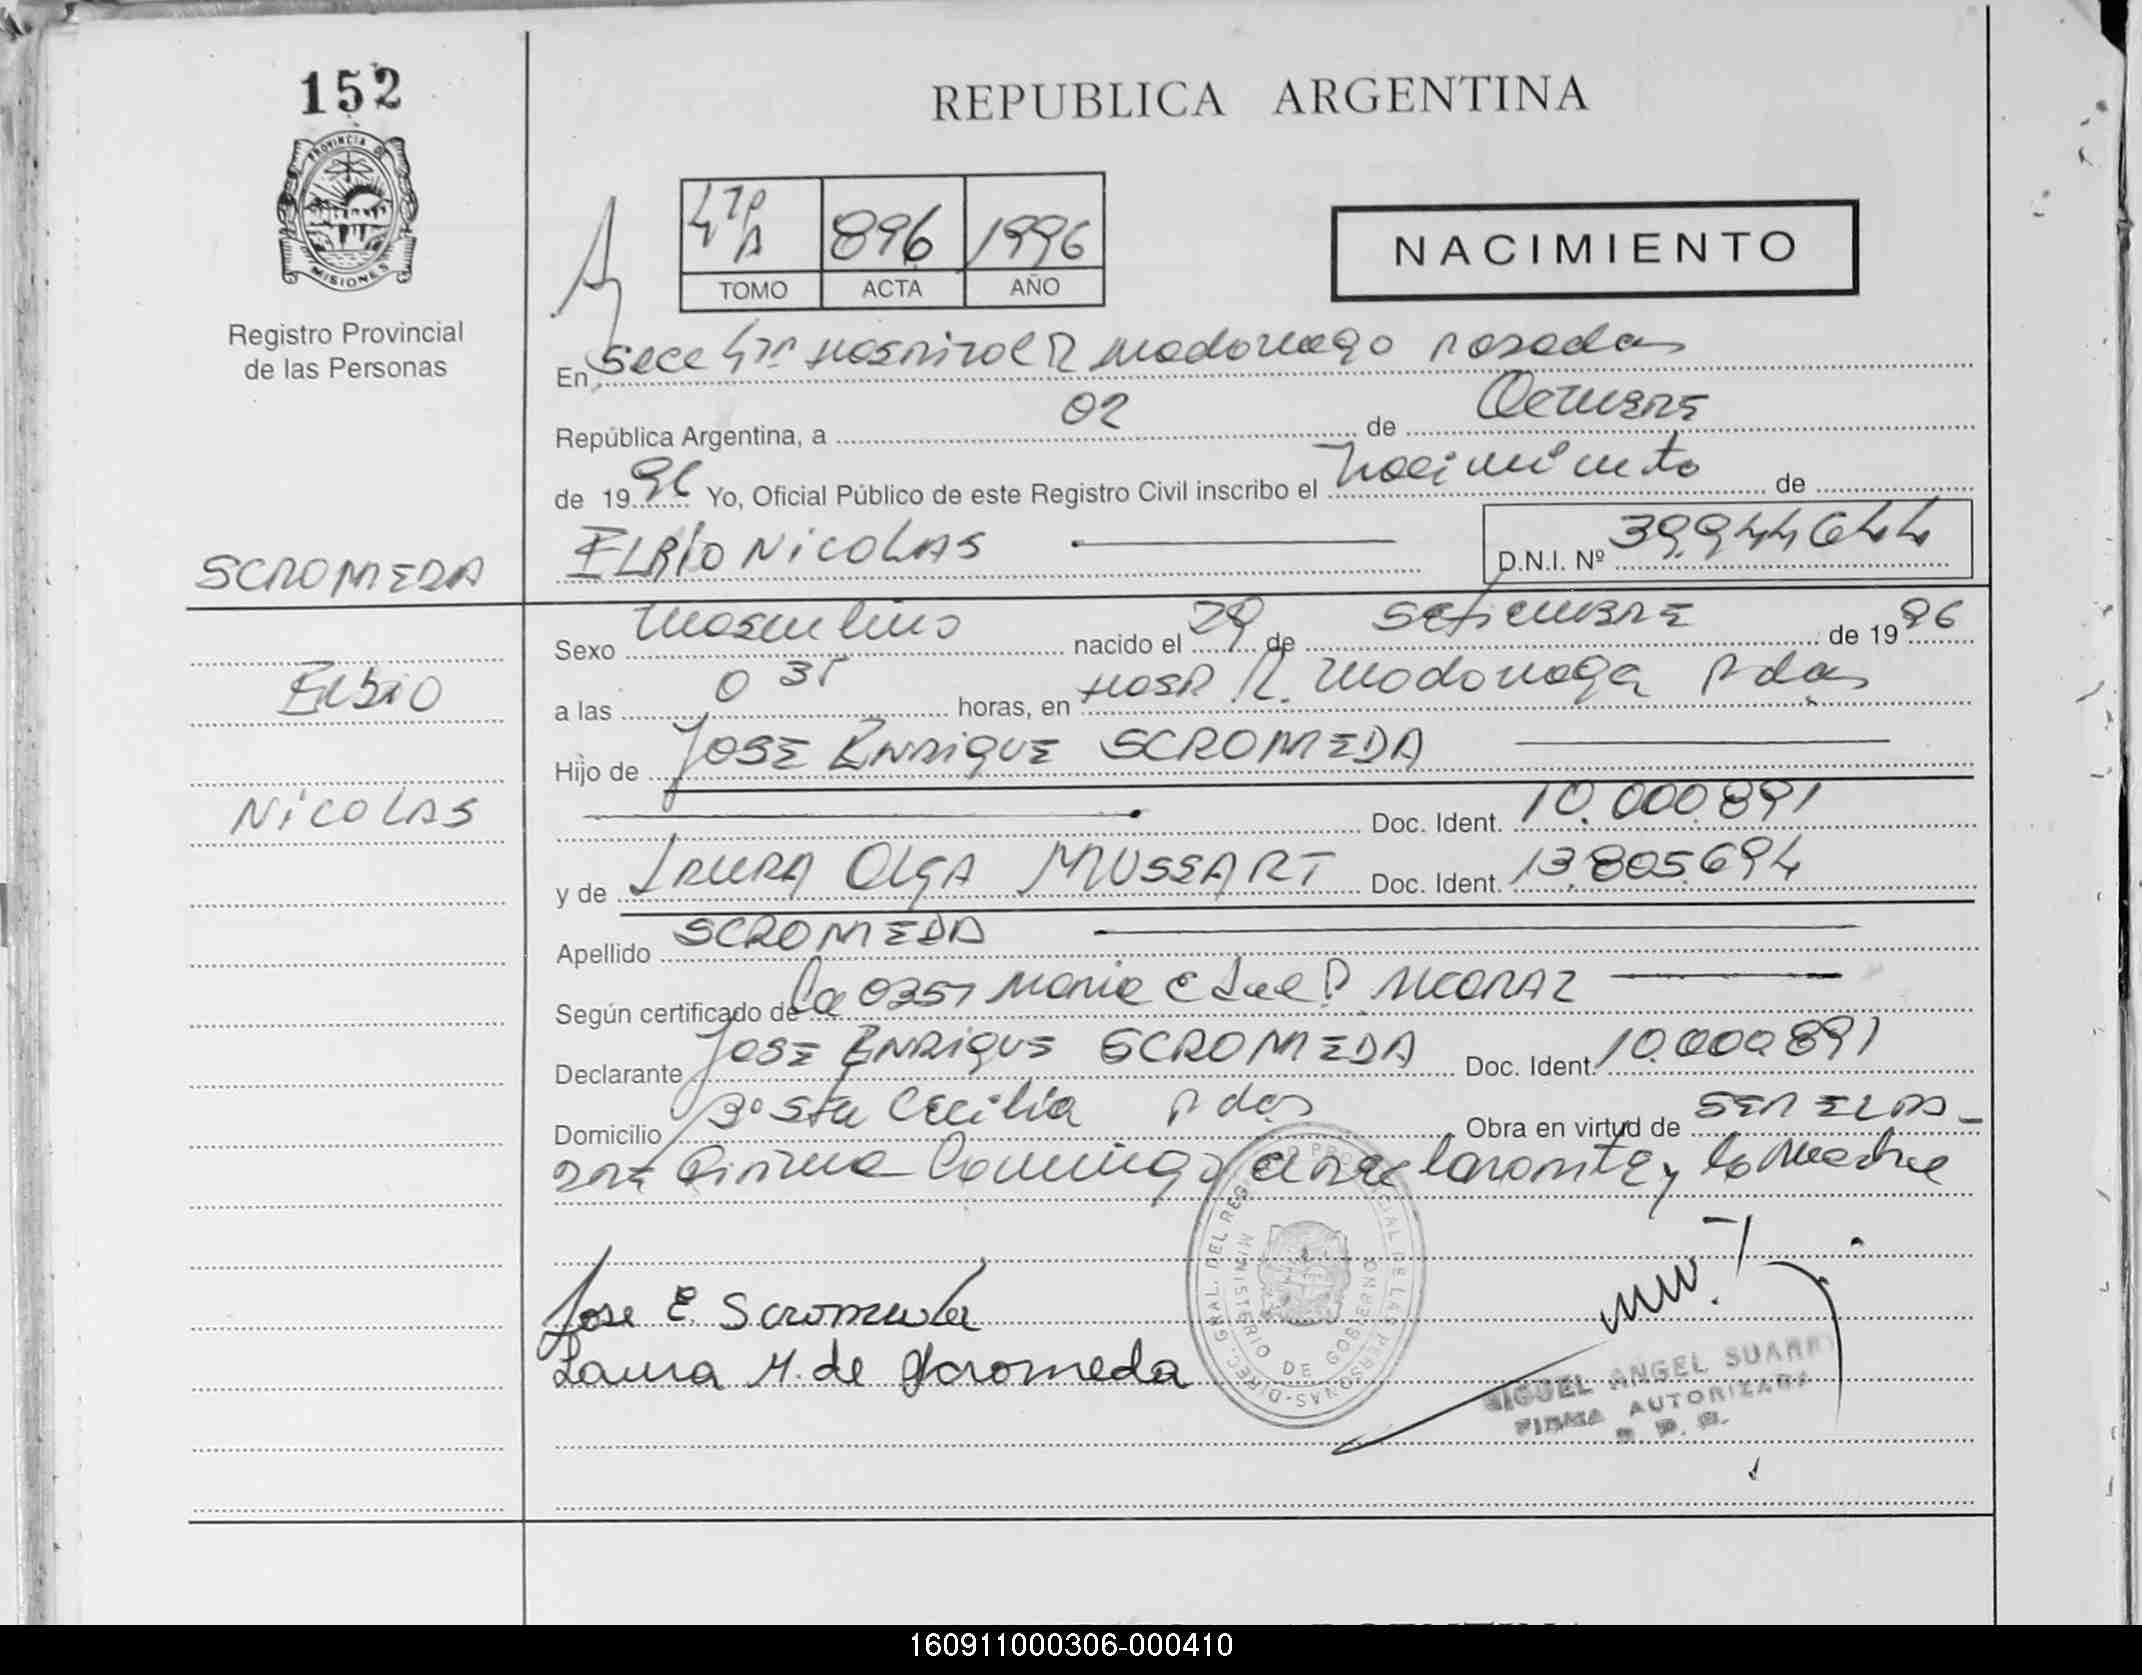 152
REPUBLICA ARGENTINA
PROVINCIA DE
MISIONES
Registro Provincial
de las Personas
896 1996
TOMO ACTA AÑO
NACIMIENTO
En Secc 4ta Hospital R Madariaga Posadas
República Argentina, a 02 de Octubre
de 1996 Yo, Oficial Público de este Registro Civil inscribo el Nacimiento de
SCROMEDA
ELBIO NICOLAS D.N.I. Nº 39.944644
Sexo Masculino nacido el 29 de Setiembre de 1996
ELBIO
a las 0 35 horas, en Hosp R. Madariaga Pdas
Hijo de JOSE ENRIQUE SCROMEDA
NICOLAS
Doc. Ident. 10.000.891
y de LAURA OLGA MUSSART Doc. Ident. 13.805.694
Apellido SCROMEDA
Según certificado de la Maria ALCARAZ
Declarante JOSE ENRIQUE SCROMEDA Doc. Ident. 10.000.891
Domicilio Bº Sta Cecilia Pdas Obra en virtud de SER EL PA-
DRE Firma Conmigo el declarante y la Madre
Jose E. Scromeda
Laura M. de Scromeda
DIREC. GRAL. DEL REGISTRO PROVINCIAL DE LAS PERSONAS
MINISTERIO DE GOBIERNO
MIGUEL ANGEL SUAREZ
FIRMA AUTORIZADA
160911000306-000410